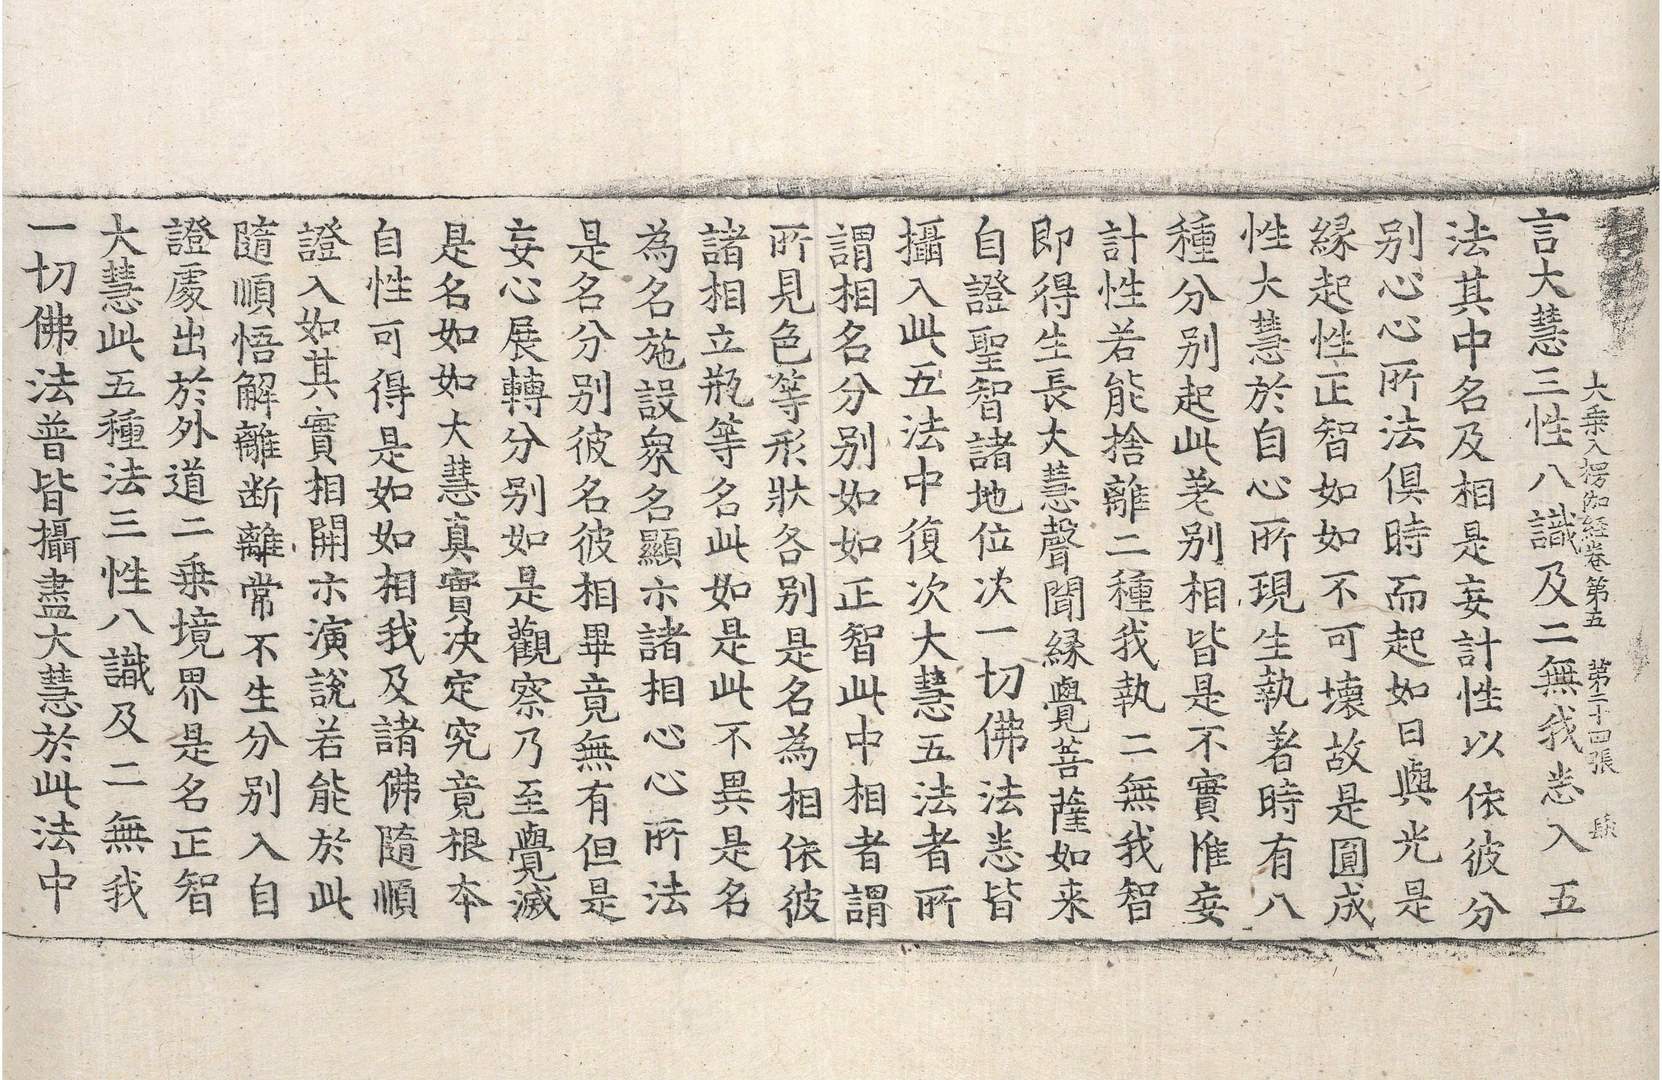 大乗入楞伽経卷第五 第二十四張
言大慧三性八識及二無我悉入五
法其中名及相是妄計性以依彼分
别心心所法俱時而起如日與光是
縁起性正智如如不可壊故是圓成
性大慧於自心所現生執著時有八
種分别起此差别相皆是不實惟妄
計性若能捨離二種我執二無我智
即得生長大慧聲聞縁覺菩薩如来
自證聖智諸地位次一切佛法悉皆
攝入此五法中復次大慧五法者所
謂相名分别如如正智此中相者謂
所見色等形狀各别是名為相依彼
諸相立瓶等名此如是此不異是名
為名施設衆名顯示諸相心心所法
是名分别彼名彼相畢竟無有但是
妄心展轉分别如是觀察乃至覺滅
是名如如大慧真實決定究竟根本
自性可得是如如相我及諸佛隨順
證入如其實相開示演說若能於此
隨順悟解離断離常不生分别入自
證處出於外道二乗境界是名正智
大慧此五種法三性八識及二無我
一切佛法普皆攝盡大慧於此法中